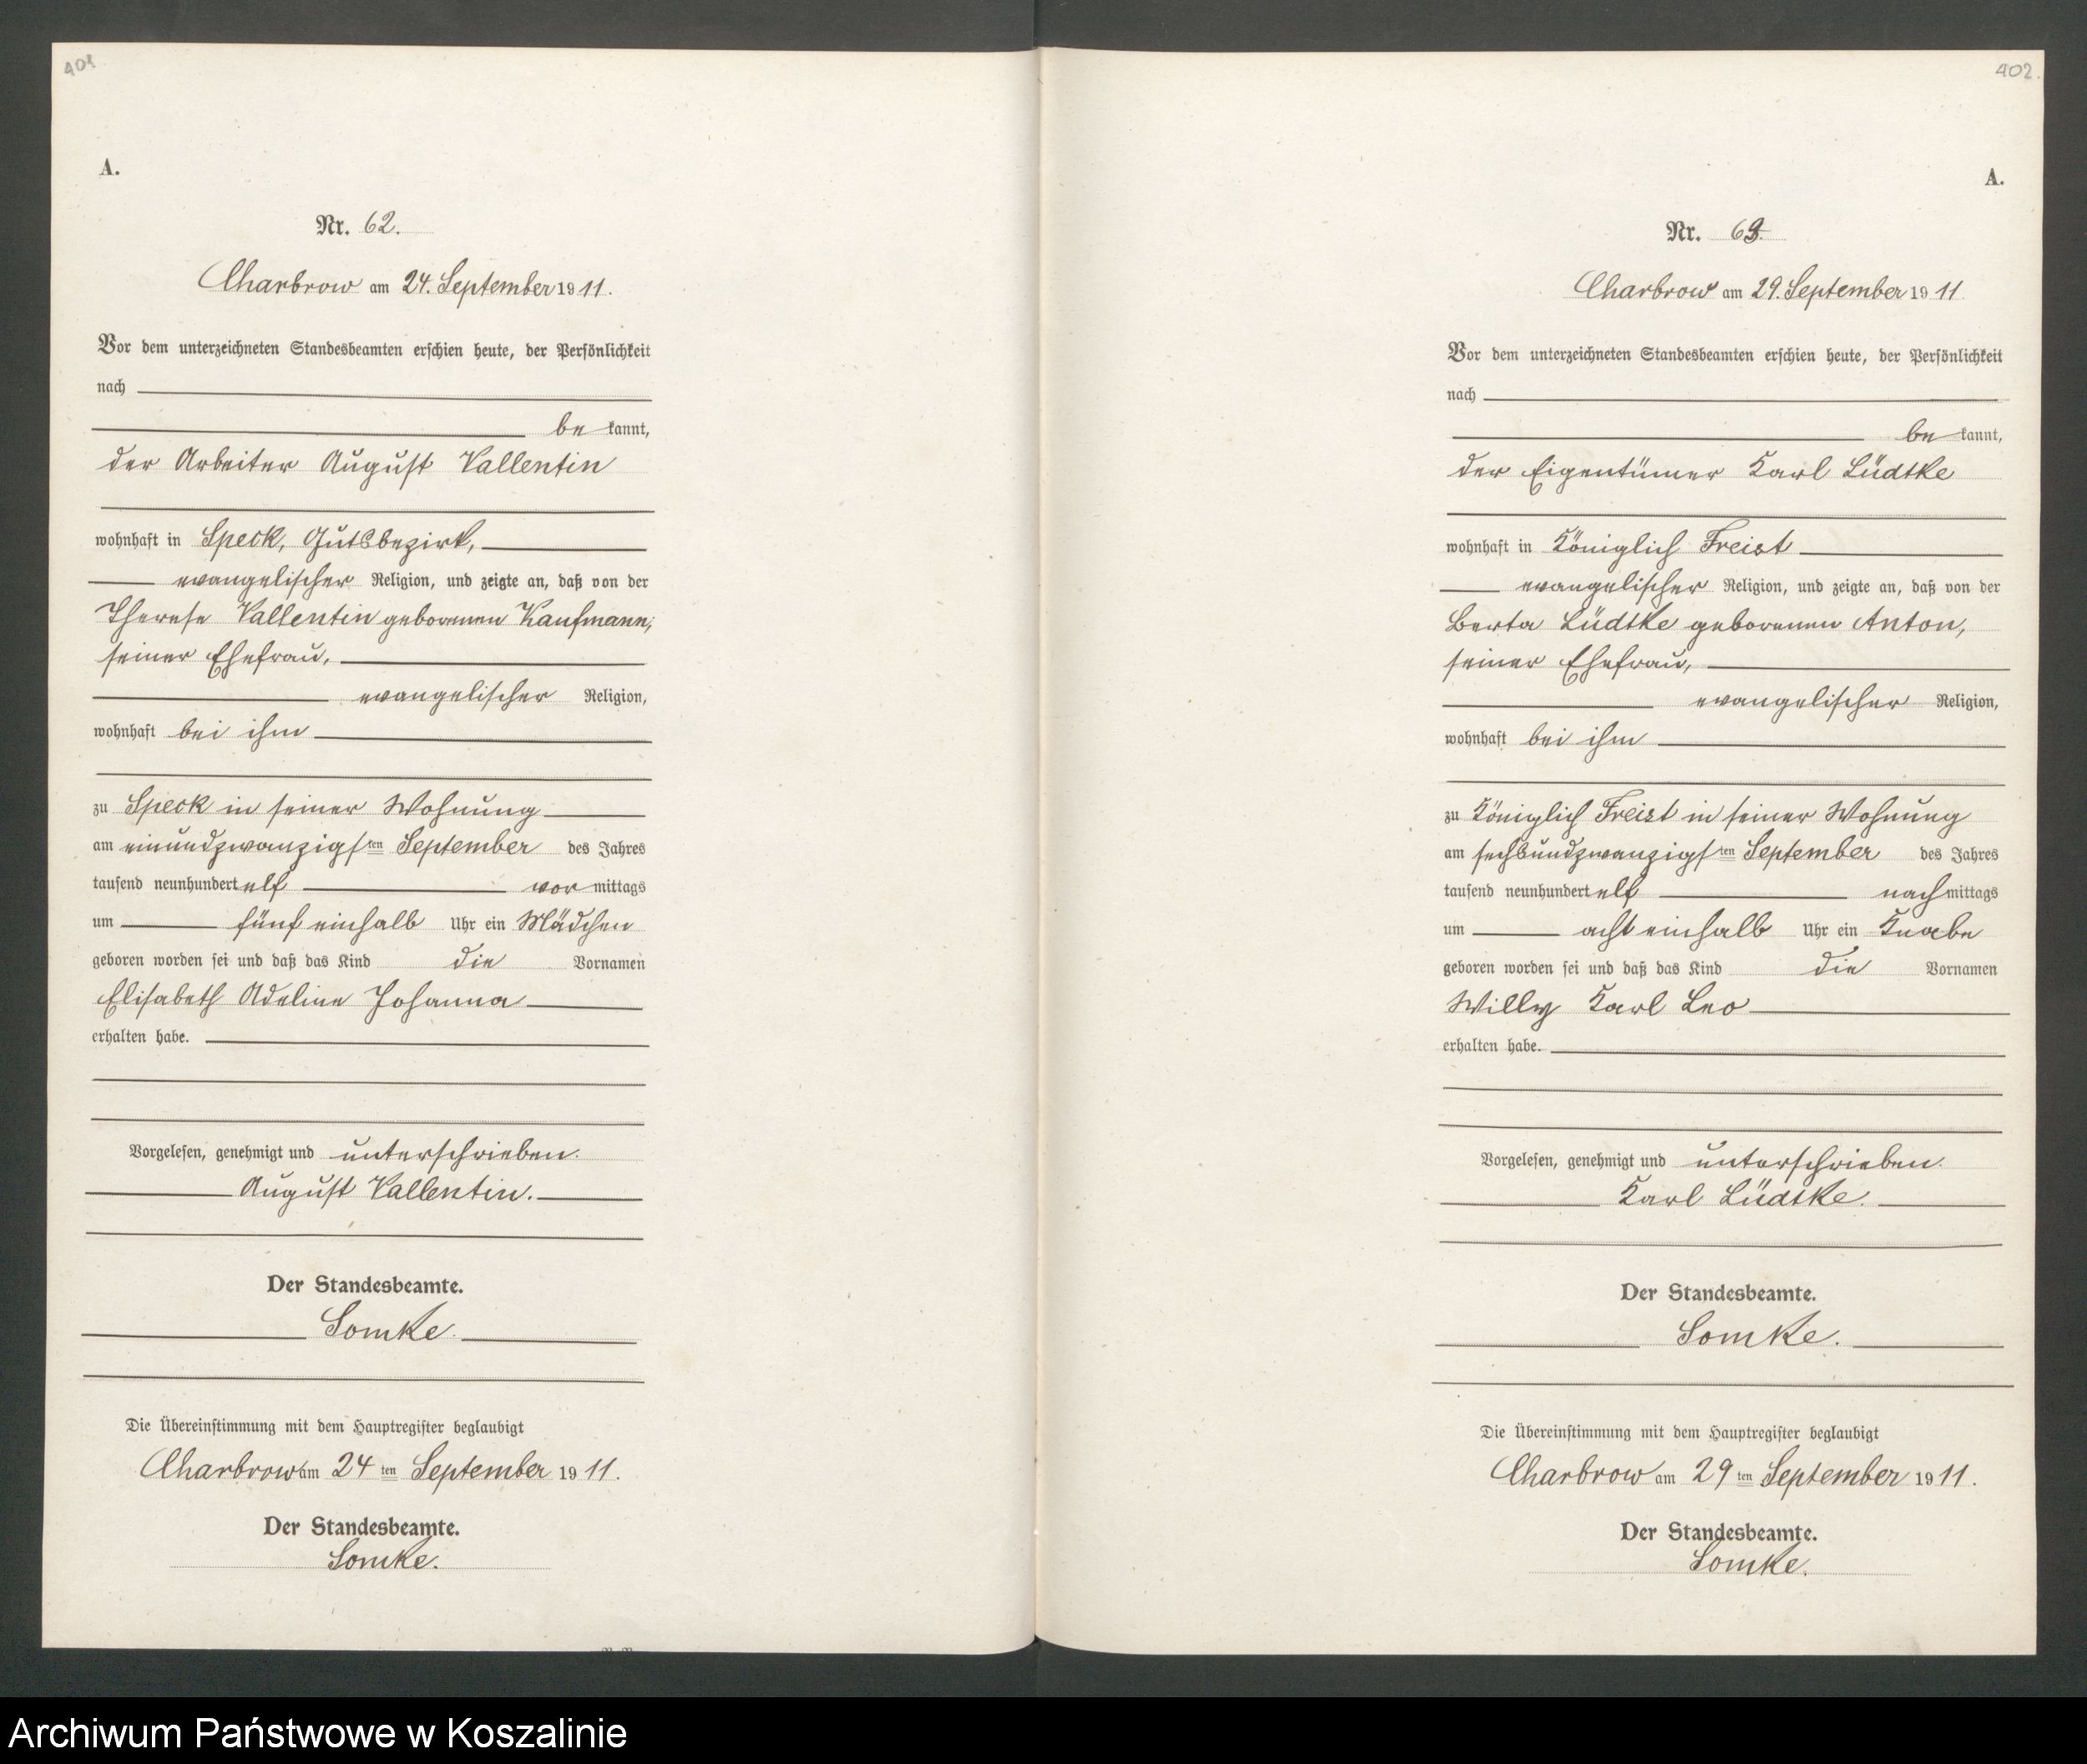 401
A.
Nr. 62.
Charbrow am 24. September 1911.
Vor dem unterzeichneten Standesbeamten erschien heute, der Persönlichkeit
nach
be kannt,
der Arbeiter August Vallentin
wohnhaft in Speck, Gutsbezirk,
evangelischer Religion, und zeigte an, daß von der
Therese Vallentin geborenen Kaufmann,
seiner Ehefrau,
evangelischer Religion,
wohnhaft bei ihm
zu Speck in seiner Wohnung
am einundzwanzigsten September des Jahres
tausend neunhundert elf vor mittags
um fünf einhalb Uhr ein Mädchen
geboren worden sei und daß das Kind die Vornamen
Elisabeth Adeline Johanna
erhalten habe.
Vorgelesen, genehmigt und unterschrieben.
August Vallentin.
Der Standesbeamte.
Somke.
Die Übereinstimmung mit dem Hauptregister beglaubigt
Charbrow am 24 ten September 1911.
Der Standesbeamte.
Somke.
402.
A.
Nr. 63.
Charbrow am 29. September 1911.
Vor dem unterzeichneten Standesbeamten erschien heute, der Persönlichkeit
nach
be kannt,
der Eigentümer Karl Lüdtke
wohnhaft in Königlich Freist
evangelischer Religion, und zeigte an, daß von der
Berta Lüdtke geborenen Anton,
seiner Ehefrau,
evangelischer Religion,
wohnhaft bei ihm
zu Königlich Freist in seiner Wohnung
am sechsundzwanzigsten September des Jahres
tausend neunhundert elf nach mittags
um acht einhalb Uhr ein Knabe
geboren worden sei und daß das Kind die Vornamen
Willy Karl Leo
erhalten habe.
Vorgelesen, genehmigt und unterschrieben.
Karl Lüdtke.
Der Standesbeamte.
Somke.
Die Übereinstimmung mit dem Hauptregister beglaubigt
Charbrow am 29 ten September 1911.
Der Standesbeamte.
Somke.
Archiwum Państwowe w Koszalinie